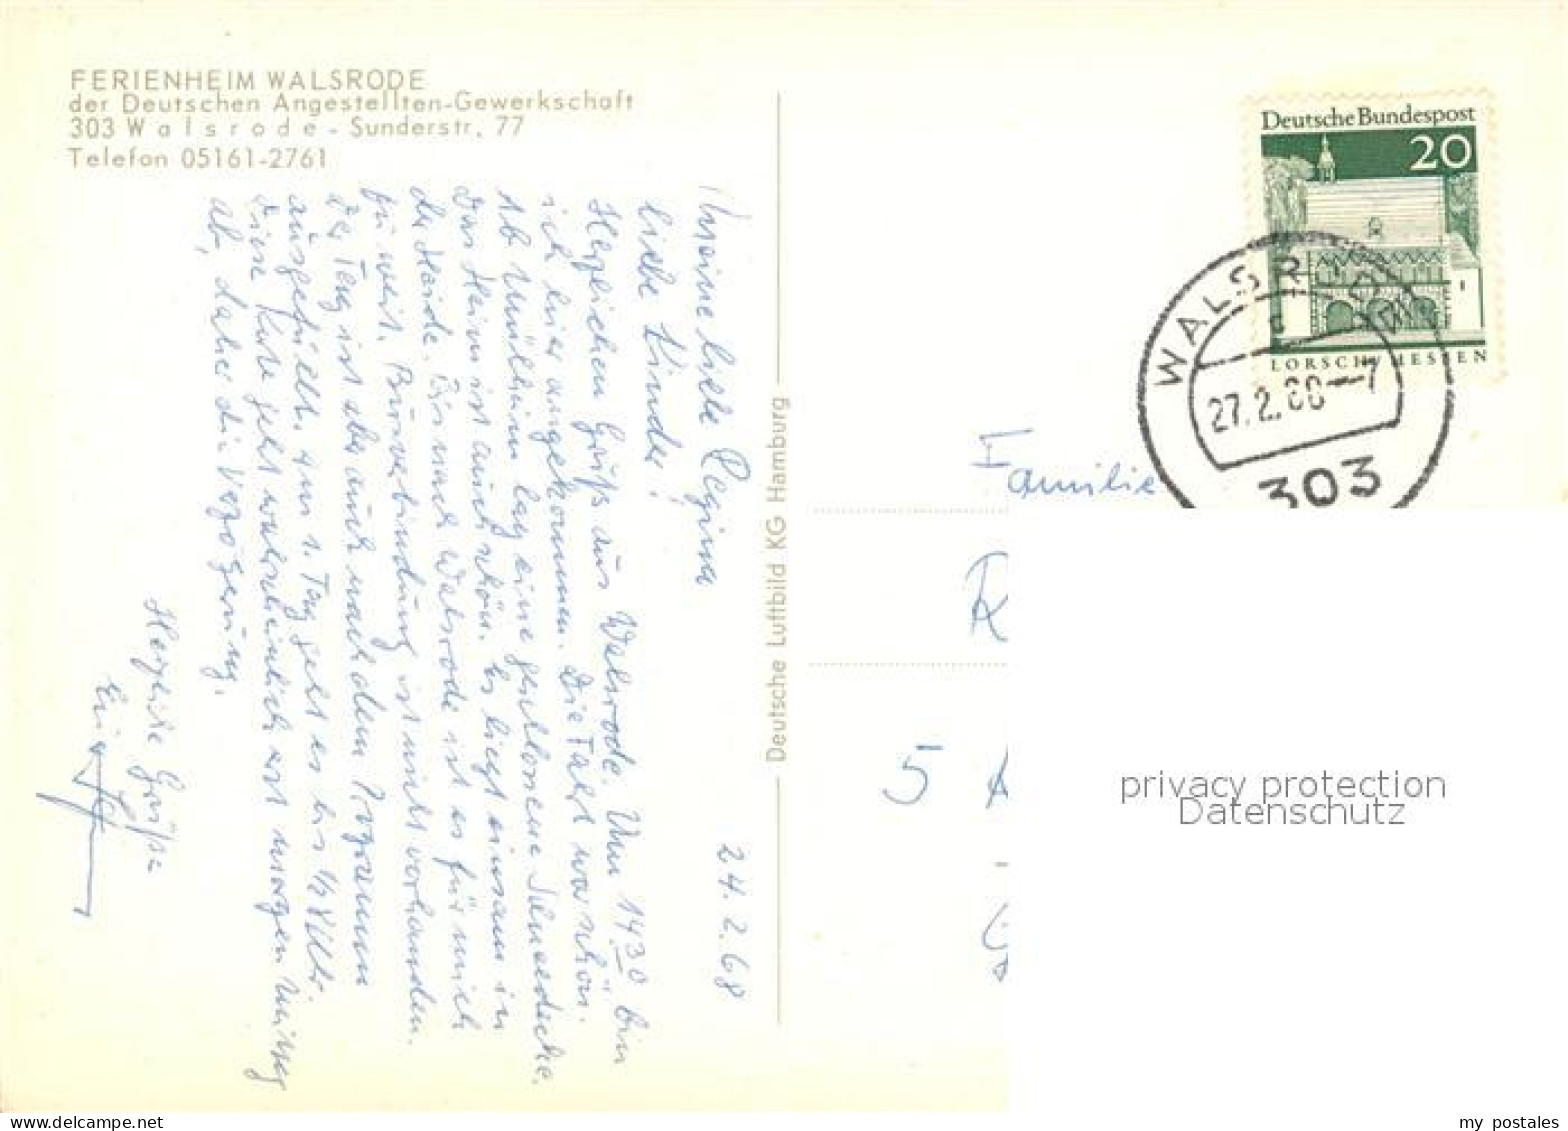 FERIENHEIM WALSRODE
der Deutschen Angestellten-Gewerkschaft
303 Walsrode - Sunderstr. 77
Telefon 05161-2761
24.2.68
Meine liebe Regina
liebe Kinder!
Herzlichen Gruß aus Walsrode. Um 14 30 bin
ich hier angekommen. Die Fahrt war schön.
Ab Müllheim lag eine geschlossene Schneedecke.
Das Heim ist auch schön. Es liegt einsam in
der Heide. nach Walsrode ist es für mich
zu weit. Busverbindung ist nicht vorhanden.
Der Tag ist aber auch nach dem Programm
ausgefüllt. Am 1. Tag geht es bis 1/2 8 Uhr.
Diese Karte geht wahrscheinlich erst morgen Mittag
ab, daher die Verzögerung.
Herzliche Grüße
Deutsche Luftbild KG Hamburg
Deutsche Bundespost
20
LORSCH/HESSEN
WALSRODE
27.2.68-7
303
Familie
R
5
privacy protection
Datenschutz
my postales